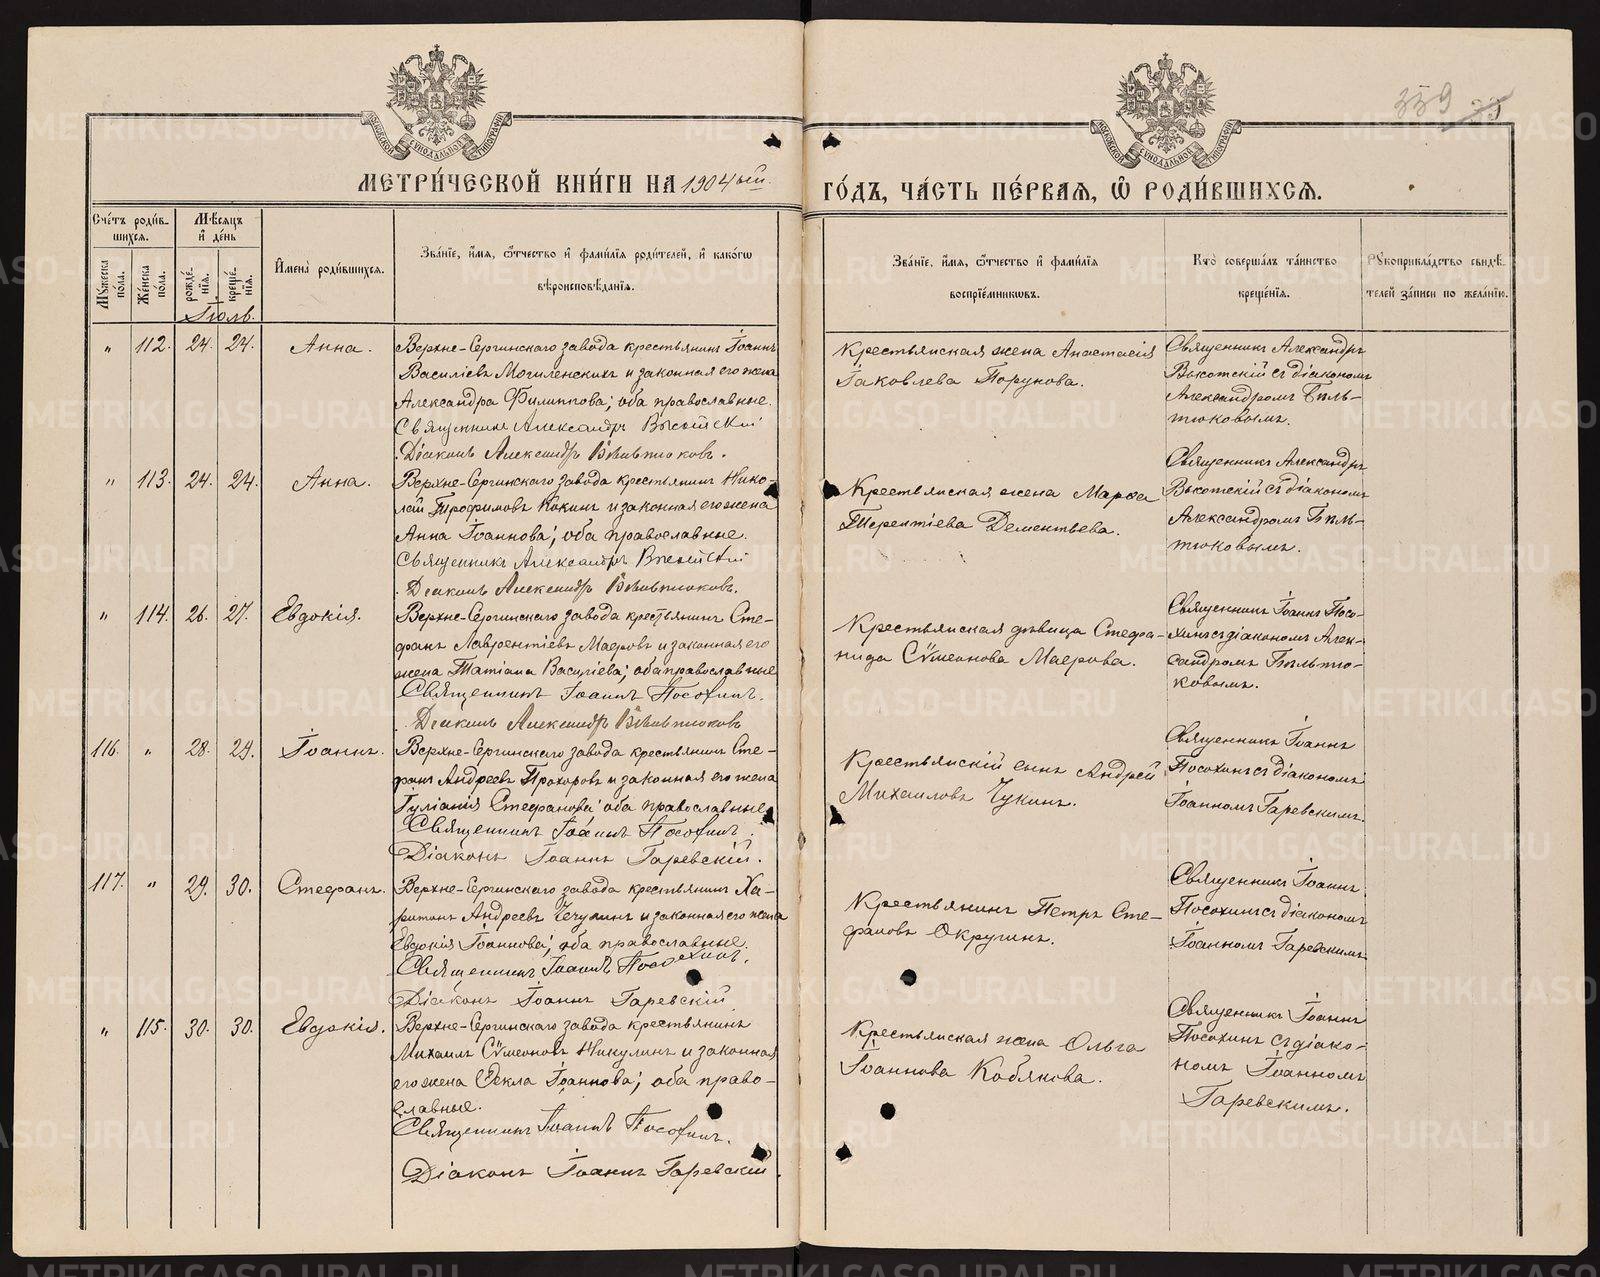 339 23
МОСКОВСКОЙ СѴНОДАЛЬНОЙ ТИПОГРАФІИ
МОСКОВСКОЙ СѴНОДАЛЬНОЙ ТИПОГРАФІИ
МЕТРИ́ЧЕСКОЙ КНИ́ГИ НА 1904ый ГО́ДЪ, ЧА́СТЬ ПЕ́РВАЯ, Ѽ РОДИ́ВШИХСЯ.
Сче́тъ роди́в-
шихся.
Мꙋжеска по́ла.
Же́нска по́ла.
Мѣсяцъ
и де́нь
рожде́нїя.
креще́нїя.
Имена̀ роди́вшихся.
Зва́нїе, и́мя, ѻ́тчество и фами́лїя роди́телей, и како́гѡ
вѣроисповѣ́данїя.
Зва́нїе, и́мя, ѻ́тчество и фами́лїя
воспрїе́мникѡвъ.
Кто̀ соверша́лъ та́инство
креще́нїя.
Рꙋкоприкла́дство свидѣ́-
телей за́писи по жела́нїю.
Іюль.
" 112. 24. 24. Анна.
Верхне-Сергинскаго завода крестьянинъ Іоаннъ
Василіевъ Могиленскихъ и законная его жена
Александра Филиппова; оба православные.
Священникъ Александръ Высотскій
Діаконъ Александръ Бѣльтюковъ.
Крестьянская жена Анастасія
Іаковлева Порунова.
Священникъ Александръ
Высотскій съ діакономъ
Александромъ Бѣль-
тюковымъ.
" 113. 24. 24. Анна.
Верхне-Сергинскаго завода крестьянинъ Нико-
лай Трофимовъ Кокинъ и законная его жена
Анна Іоаннова; оба православные.
Священникъ Александръ Высотскій
Діаконъ Александръ Бѣльтюковъ.
Крестьянская жена Марѳа
Терентіева Дементьева.
Священникъ Александръ
Высотскій съ діакономъ
Александромъ Бѣль-
тюковымъ.
" 114. 26. 27. Евдокія.
Верхне-Сергинскаго завода крестьянинъ Сте-
фанъ Лаврентіевъ Маеровъ и законная его
жена Татіана Василіева; оба православные
Священникъ Іоаннъ Посохинъ.
Діаконъ Александръ Бѣльтюковъ
Крестьянская дѣвица Стефа-
нида Сѵмеонова Маерова.
Священникъ Іоаннъ Посо-
хинъ съ діакономъ Алек-
сандромъ Бѣльтю-
ковымъ.
116. " 28. 29. Іоаннъ.
Верхне-Сергинскаго завода крестьянинъ Сте-
фанъ Андреевъ Прохоровъ и законная его жена
Іуліанія Стефанова; оба православные
Священникъ Іоаннъ Посохинъ.
Діаконъ Іоаннъ Гаревскій.
Крестьянскій сынъ Андрей
Михаиловъ Чукинъ.
Священникъ Іоаннъ
Посохинъ съ діакономъ
Іоанномъ Гаревскимъ.
117. " 29. 30. Стефанъ.
Верхне-Сергинскаго завода крестьянинъ Ха-
ритонъ Андреевъ Чечулинъ и законная его жена
Евдокія Іоаннова; оба православные.
Священникъ Іоаннъ Посохинъ.
Діаконъ Іоаннъ Гаревскій
Крестьянинъ Петръ Сте-
фановъ Округинъ.
Священникъ Іоаннъ
Посохинъ съ діакономъ
Іоанномъ Гаревскимъ
" 115. 30. 30. Евдокія.
Верхне-Сергинскаго завода крестьянинъ
Михаилъ Сѵмеоновъ Никулинъ и законная
его жена Ѳекла Іоаннова; оба право-
славные.
Священникъ Іоаннъ Посохинъ.
Діаконъ Іоаннъ Гаревскій.
Крестьянская жена Ольга
Іоаннова Кобякова.
Священникъ Іоаннъ
Посохинъ съ діако-
номъ Іоанномъ
Гаревскимъ.
METRIKI.GASO-URAL.RU